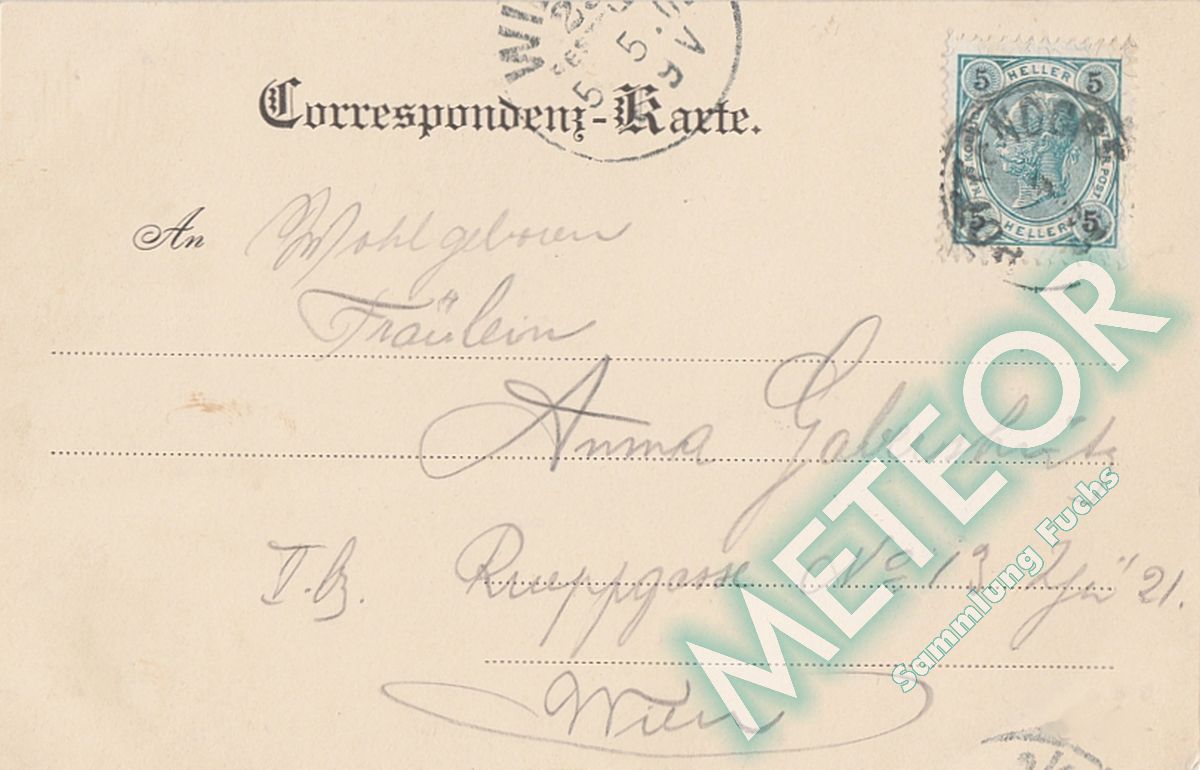 WI
5 5
9 V
Correspondenz-Karte.
5 HELLER 5
5 HELLER 5
An Wohlgeboren
Fräulein
Anna
Rueppgasse No 13 21.
Wien
METEOR
Sammlung Fuchs